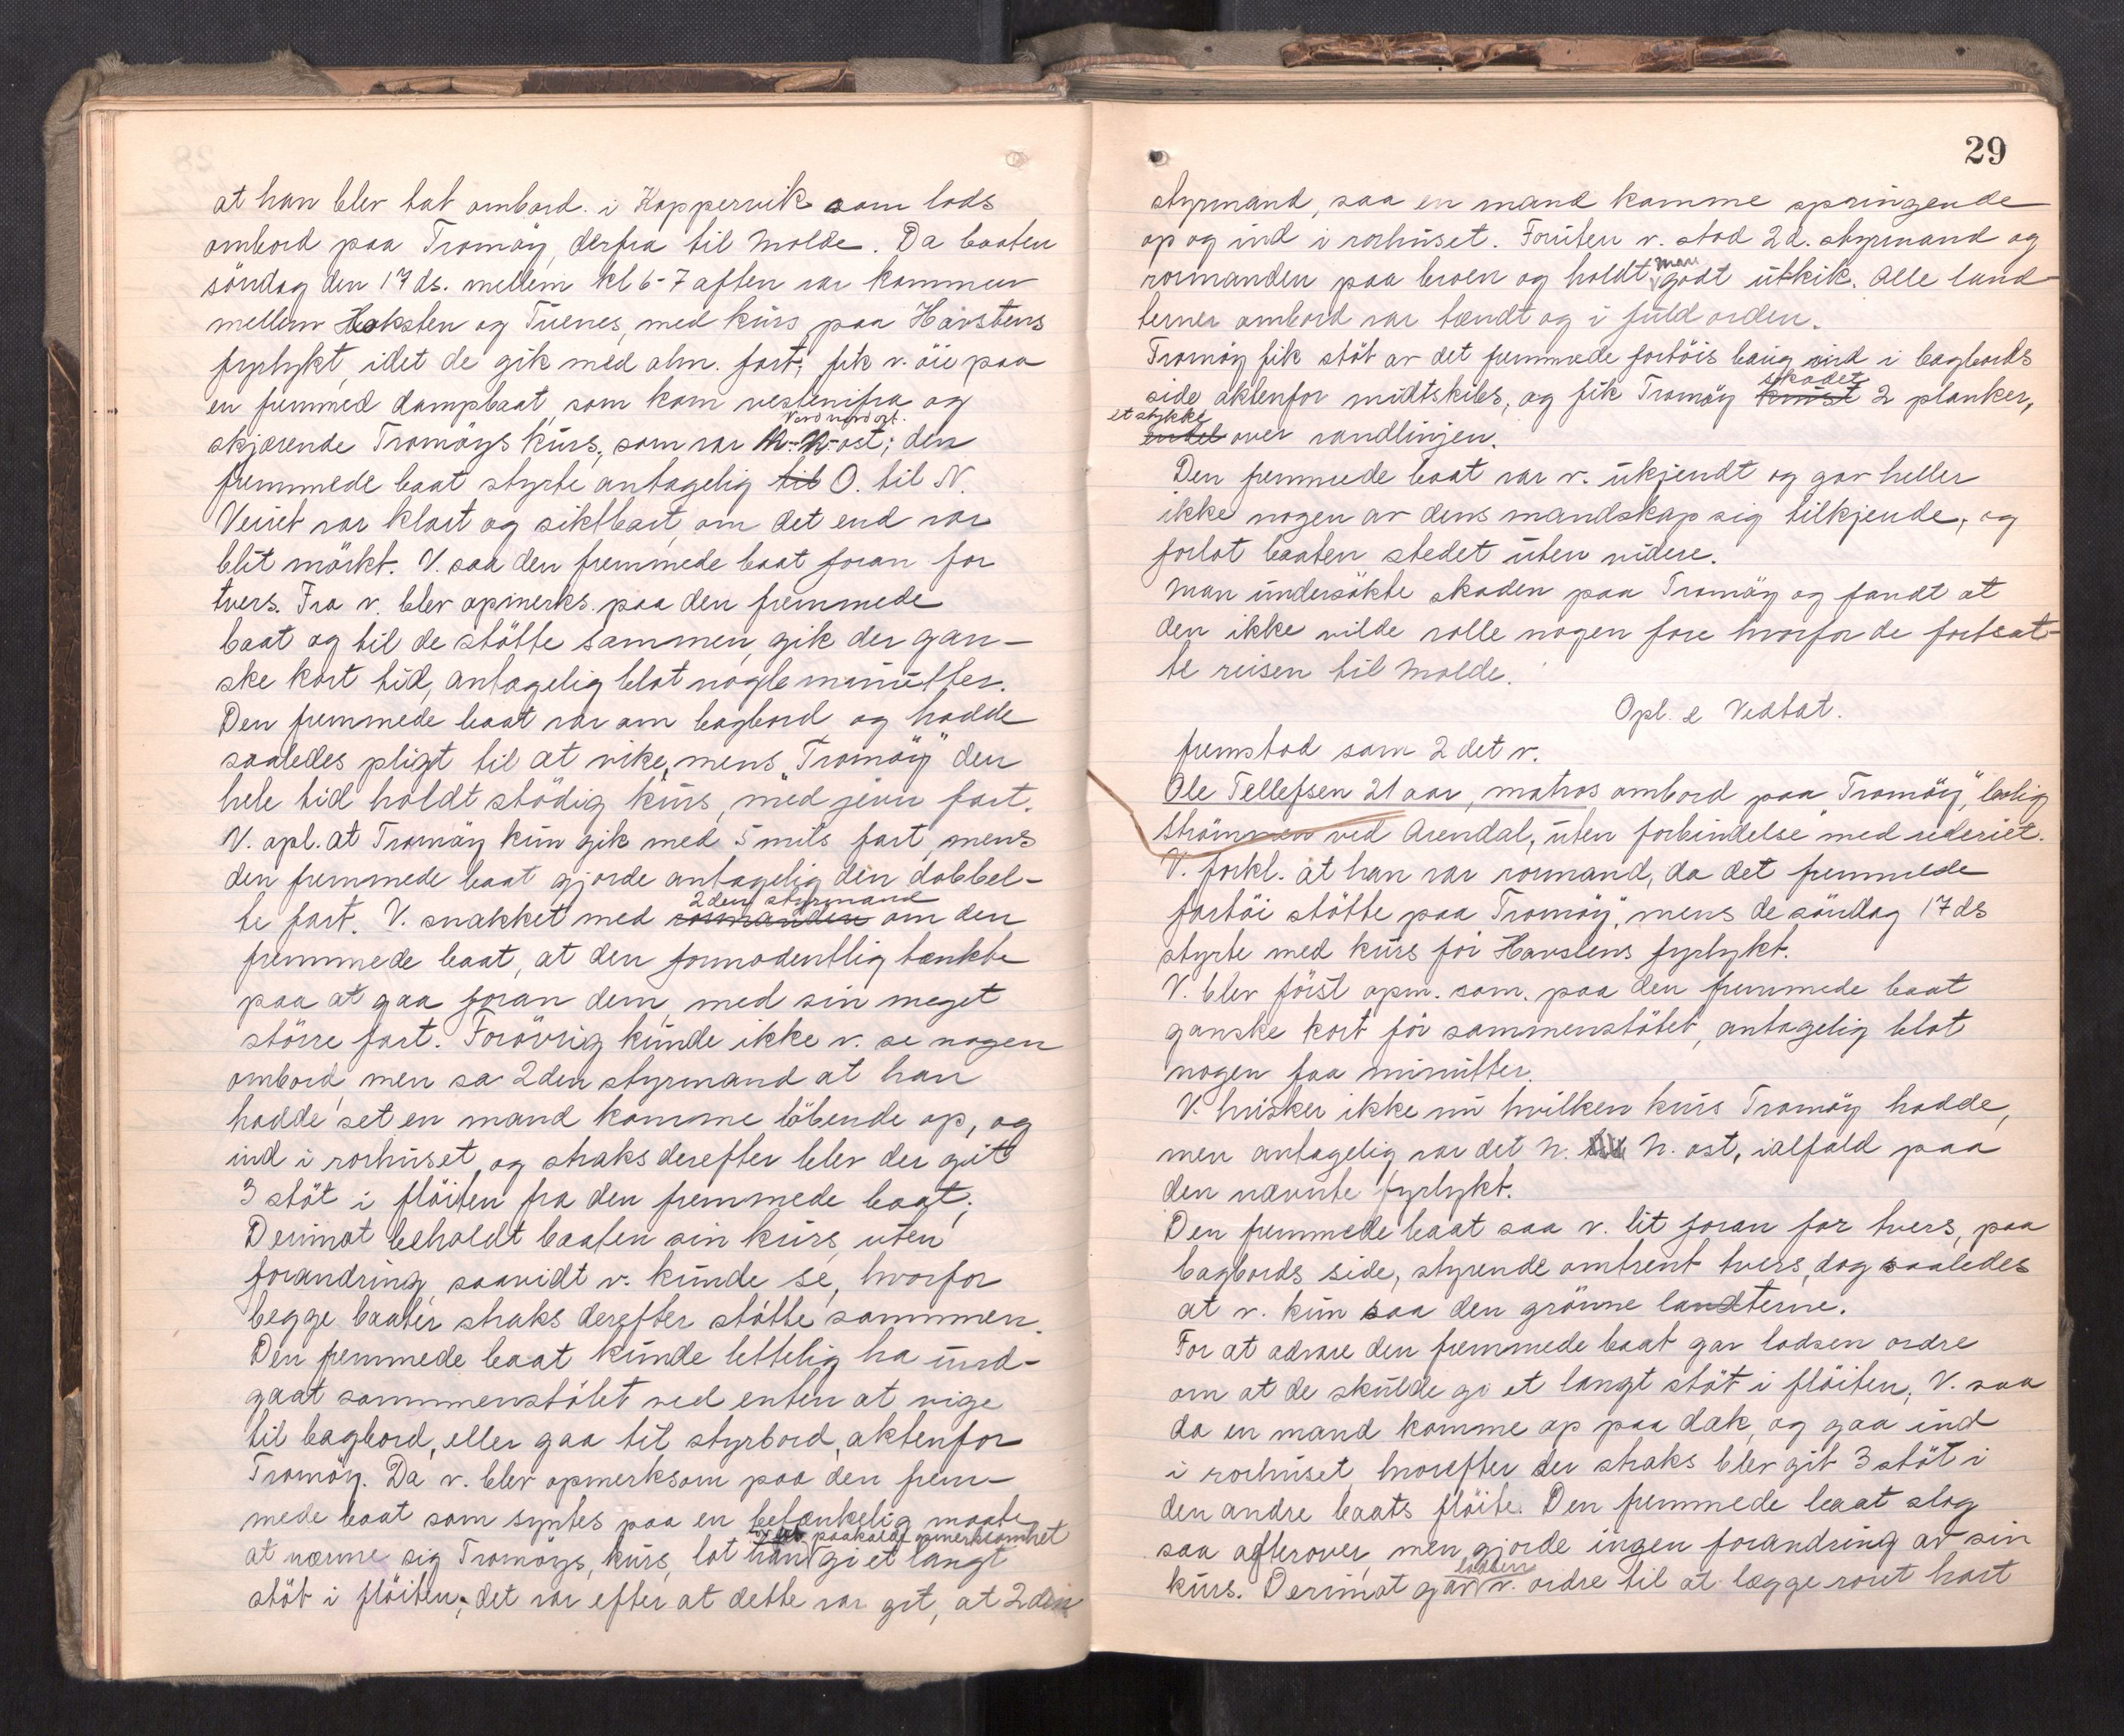 at han blev tat ombord i Koppervik som lods
ombord paa Tromöy, derfra til Molde. Da baaten
söndag den 17 ds. mellem kl 6-7 aften var kommen
mellem Hoksten og Tuenes, med kurs paa Havstens
fyrlykt, idet de gik med alm. fart; fik v. öie paa
en fremmed dampbaat, som kom vestenifra og
Nordnordost.
skjærende Tromöys kurs, som var N-N-ost; den
fremmede baat styrte antagelig til O. til N.
Veiret var klart og siktbart, om det end var
blit mörkt. V. saa den fremmede baat foran for
tvers. Fra v. blev opmerks. paa den fremmede
baat og til de stötte sammen, gik der gan-
ske kort tid, antagelig blot nogle minutter.
Den fremmede baat var om bagbord og hadde
saaledes pligt til at vike, mens "Tromöy" den
hele tid holdt stödig kurs, med jevn fart.
V. opl. at Tromöy kun gik med 5 mils fart, mens
den fremmede baat gjorde antagelig den dobbel-
2den styrmand
te fart. V. snakket med rormanden om den
fremmede baat, at den formodentlig tænkte
paa at gaa foran dem, med sin meget
större fart. Forövrig kunde ikke v. se nogen
ombord, men sa 2den styrmand at han
hadde set en mand komme löbende op, og
ind i rorhuset, og straks derefter blev der git
3 stöt i flöiten fra den fremmede baat;
Derimot beholdt baaten sin kurs, uten
forandring, saavidt v. kunde se, hvorfor
begge baater straks derefter stötte sammen.
Den fremmede baat kunde lettelig ha und-
gaat sammenstötet ved enten at vige
til bagbord, eller gaa til styrbord, aktenfor
Tromöy. Da v. blev opmerksom paa den frem-
mede baat som syntes paa en betænkelig maate
paakalde opmerksomhet
at nærme sig Tromöys, kurs, lot han gi et langt
stöt i flöiten; det var efter at dette var git, at 2den
29
styrmand, saa en mand komme springende
op og ind i rorhuset. Foruten v. stod 2d. styrmand og
man
rormanden paa broen og holdt godt utkik. Alle land-
terner ombord var tændt og i fuld orden.
Tromöy fik stöt av det fremmede fartöis baug ind i bagbords
skadet
side aktenfor midtskibs, og fik Tromöy knust 2 planker,
et stykke
endel over vandlinjen.
Den fremmede baat var v. ukjendt og gav heller
ikke nogen av dens mandskap sig tilkjende, og
forlot baaten stedet uten videre.
Man undersökte skaden paa Tromöy og fandt at
den ikke vilde volle nogen fare hvorfor de fortsat-
te reisen til Molde.
Opl. & Vedtat.
fremstod som 2det v.
Ole Tellefsen 21 aar, matros ombord paa "Tromöy", bolig
Strömmen ved Arendal, uten forbindelse med rederiet.
V. forkl. at han var rormand, da det fremmede
fartöi stötte paa "Tromöy", mens de söndag 17 ds
styrte med kurs for Havstens fyrlykt.
V. blev först opm. som. paa den fremmede baat
ganske kort för sammenstötet, antagelig blot
nogen faa minutter.
V. husker ikke nu hvilken kurs Tromöy hadde,
men antagelig var det N. N. ost, ialfald paa
den nævnte fyrlykt.
Den fremmede baat saa v. lit foran for tvers, paa
bagbords side, styrende omtrent tvers, dog saaledes
at v. kun saa den grönne landterne.
For at advare den fremmede baat gav lodsen ordre
om at de skulde gi et langt stöt i flöiten, V. saa
da en mand komme op paa dæk, og gaa ind
i rorhuset hvorefter der straks blev git 3 stöt i
den andre baats flöite. Den fremmede baat slog
saa agterover, men gjorde ingen forandring av sin
lodsen
kurs. Derimot gav v. ordre til at lægge roret hart